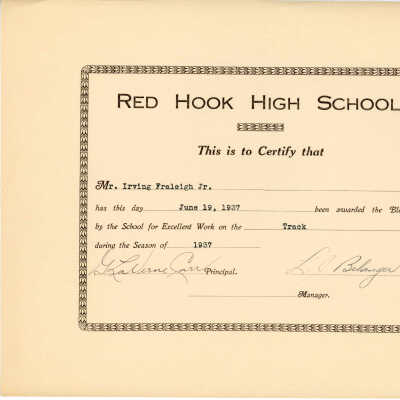 RED HOOK HIGH SCHOOL
This is to Certify that
Mr. Irving Fraleigh Jr.
has this day June 19, 1937 been awarded the
by the School for Excellent Work on the Track
during the Season of 1937
Principal. L. O. Belanger
Manager.